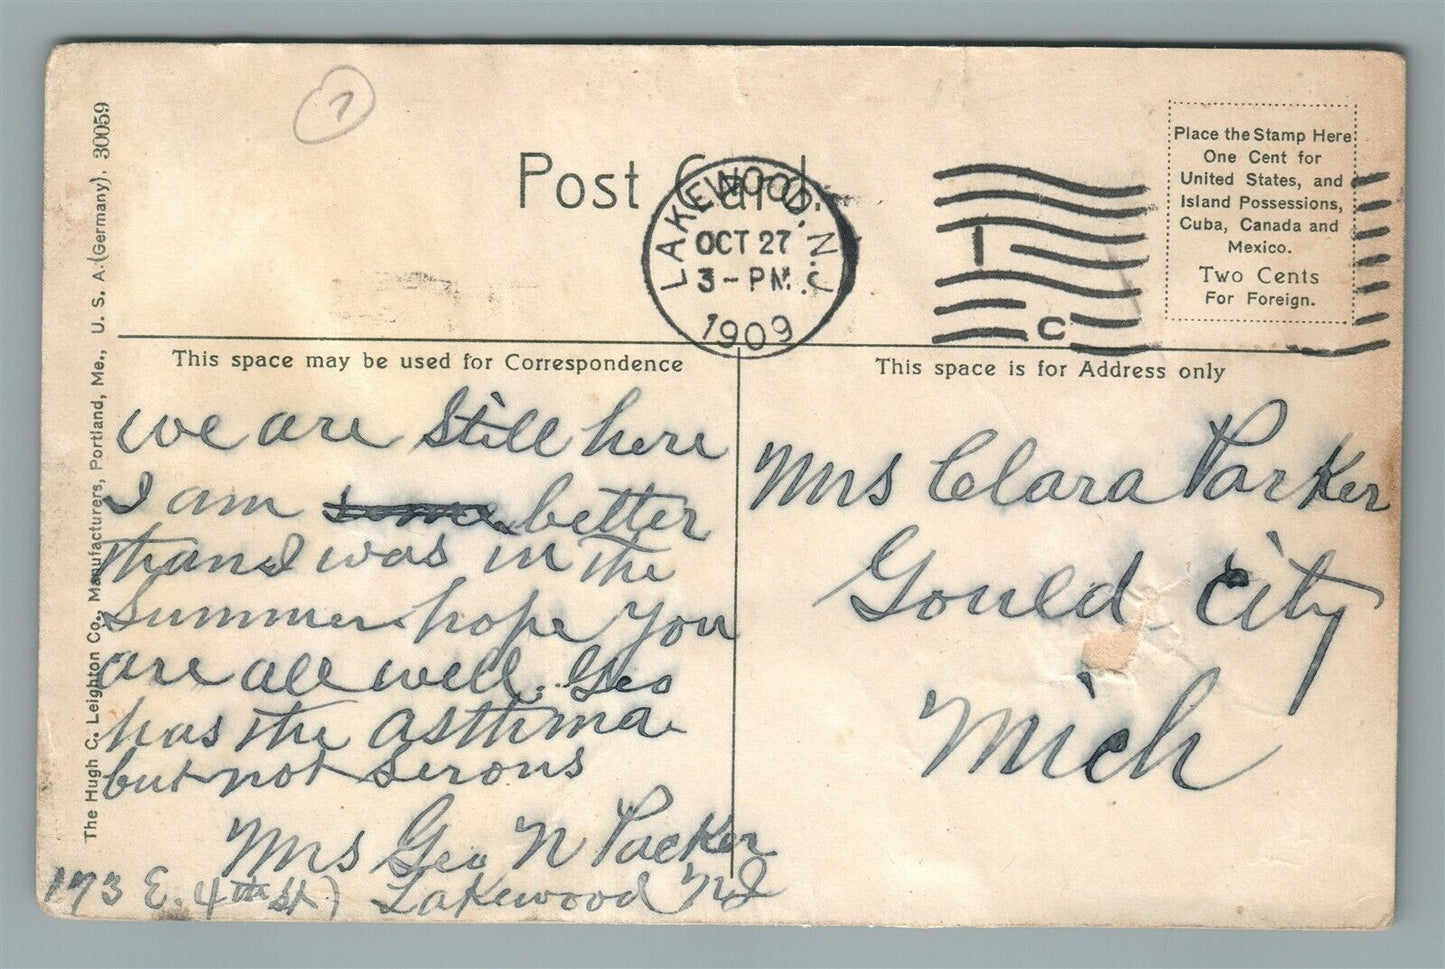 1
Post Card.
LAKEWOOD, N.J.
OCT 27
3-PM.
1909
1 C
Place the Stamp Here
One Cent for
United States, and
Island Possessions,
Cuba, Canada and
Mexico.
Two Cents
For Foreign.
The Hugh C. Leighton Co., Manufacturers, Portland, Me., U. S. A. (Germany). 30059
This space may be used for Correspondence
This space is for Address only
we are still here
I am better
than I was in the
Summer hope you
are all well. Geo
has the asthma
but not serous
Mrs Geo N Packer
173 E. 4th St) Lakewood NJ
Mrs Clara Parker
Gould City
Mich